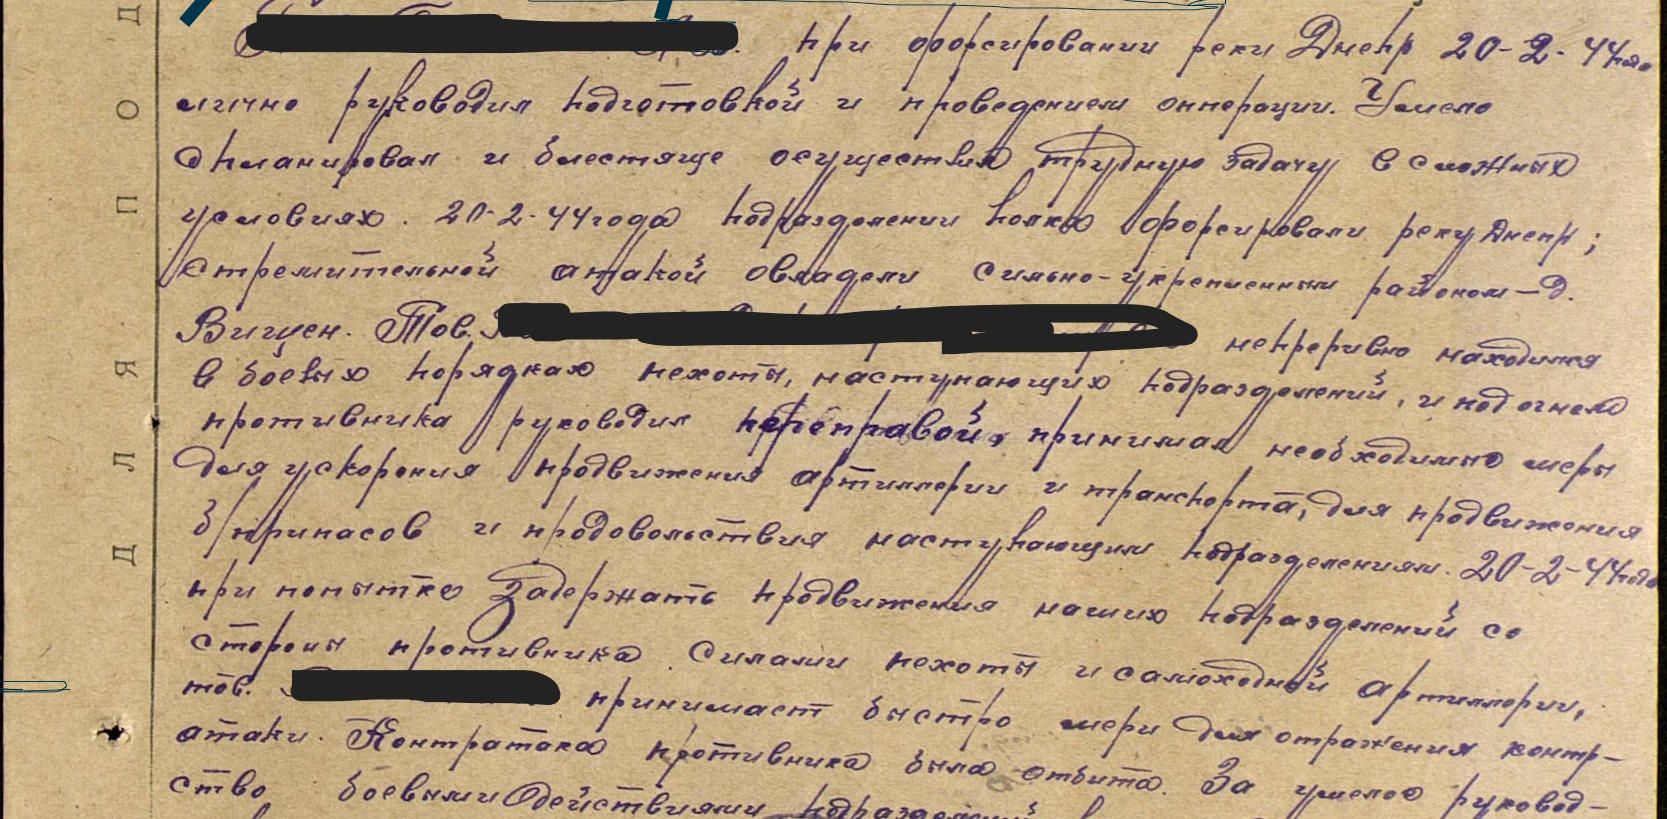 при форсировании реки Днепр 20-2-44 года
лично руководил подготовкой и проведением операции. Умело
спланировал и блестяще осуществил трудную задачу в сложных
условиях. 20-2-44 года подразделении полка форсировали реку Днепр;
стремительной атакой овладели сильно-укрепленным районом — д.
Вищен. Тов. непреривно находился
в боевых порядках пехоты, наступающих подразделений, и под огнем
противника руководил переправой, принимал необходимые меры
для ускорения продвижения артиллерии и транспорта, для продвижения
б/припасов и продовольствия наступающим подразделениям. 20-2-44 года
при попытке задержать продвижения наших подразделений со
стороны противника силами пехоты и самоходной артиллерии,
тов. принимает быстро мери для отражения контр-
атаки. Контратака противника была отбита. За умелое руковод-
ство боевыми действиями подразделений
Д
О
П
Я
Л
Д